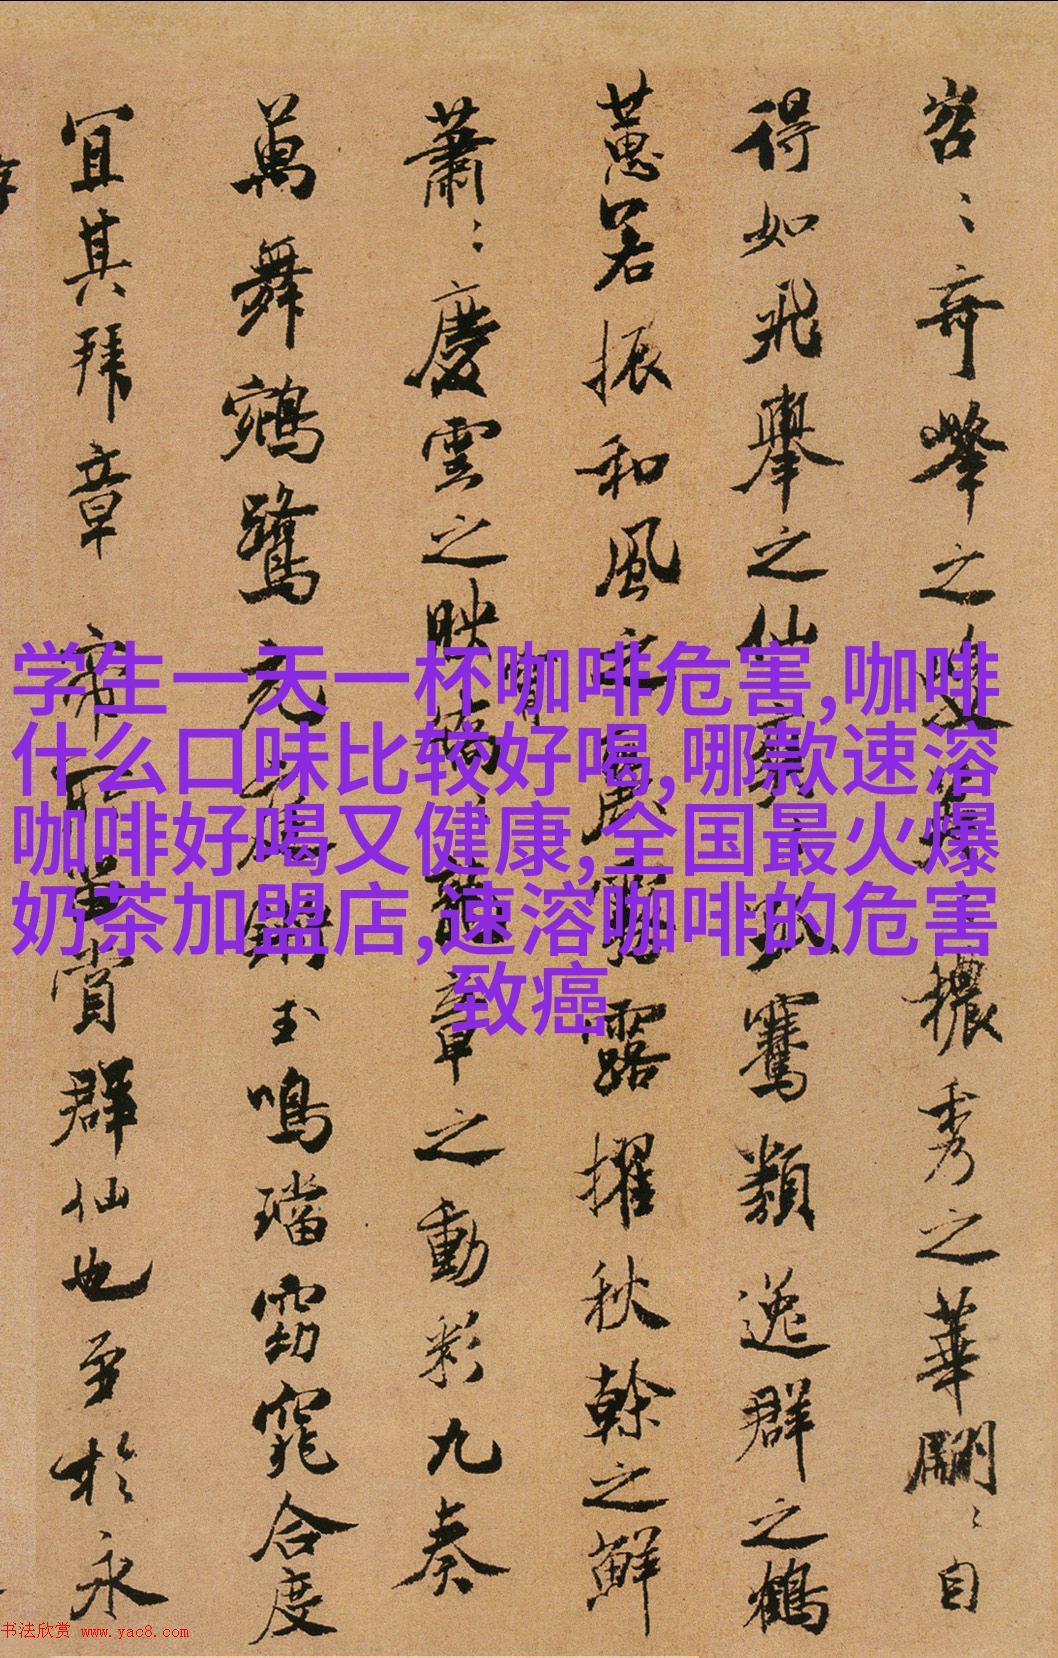 学生一天一杯咖啡危害,咖啡
什么口味比较好喝,哪款速溶
咖啡好喝又健康,全国最火爆
奶茶加盟店,速溶咖啡的危害
致癌
奇峰之穠秀之華關〻自
得如飛舉之仙騫類逸群之鶴
蕙若振和風之麗霧露擢秋榦之鮮
蕭〻慶雲之映霄章之動彩九奏
萬舞鵷鷺充庭鏘玉鳴璫窈窕合度
宜其拜章帝所賞群仙也至於永
书法欣赏 www.yac8.com